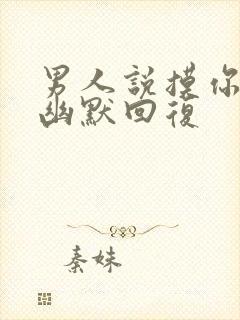 男人説摸你
幽默回復
秦妹